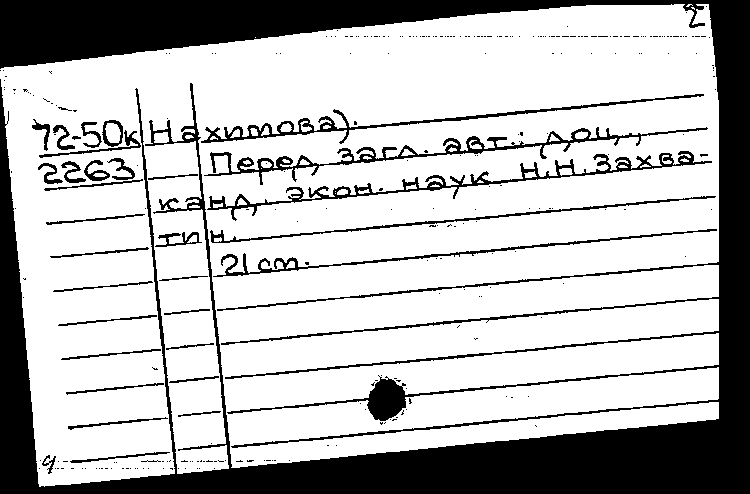 2
72-50к Нахимова).
2263 Перед загл. авт.: доц.,
канд. экон. наук Н.Н. Захва-
тин.
21 cm.
9